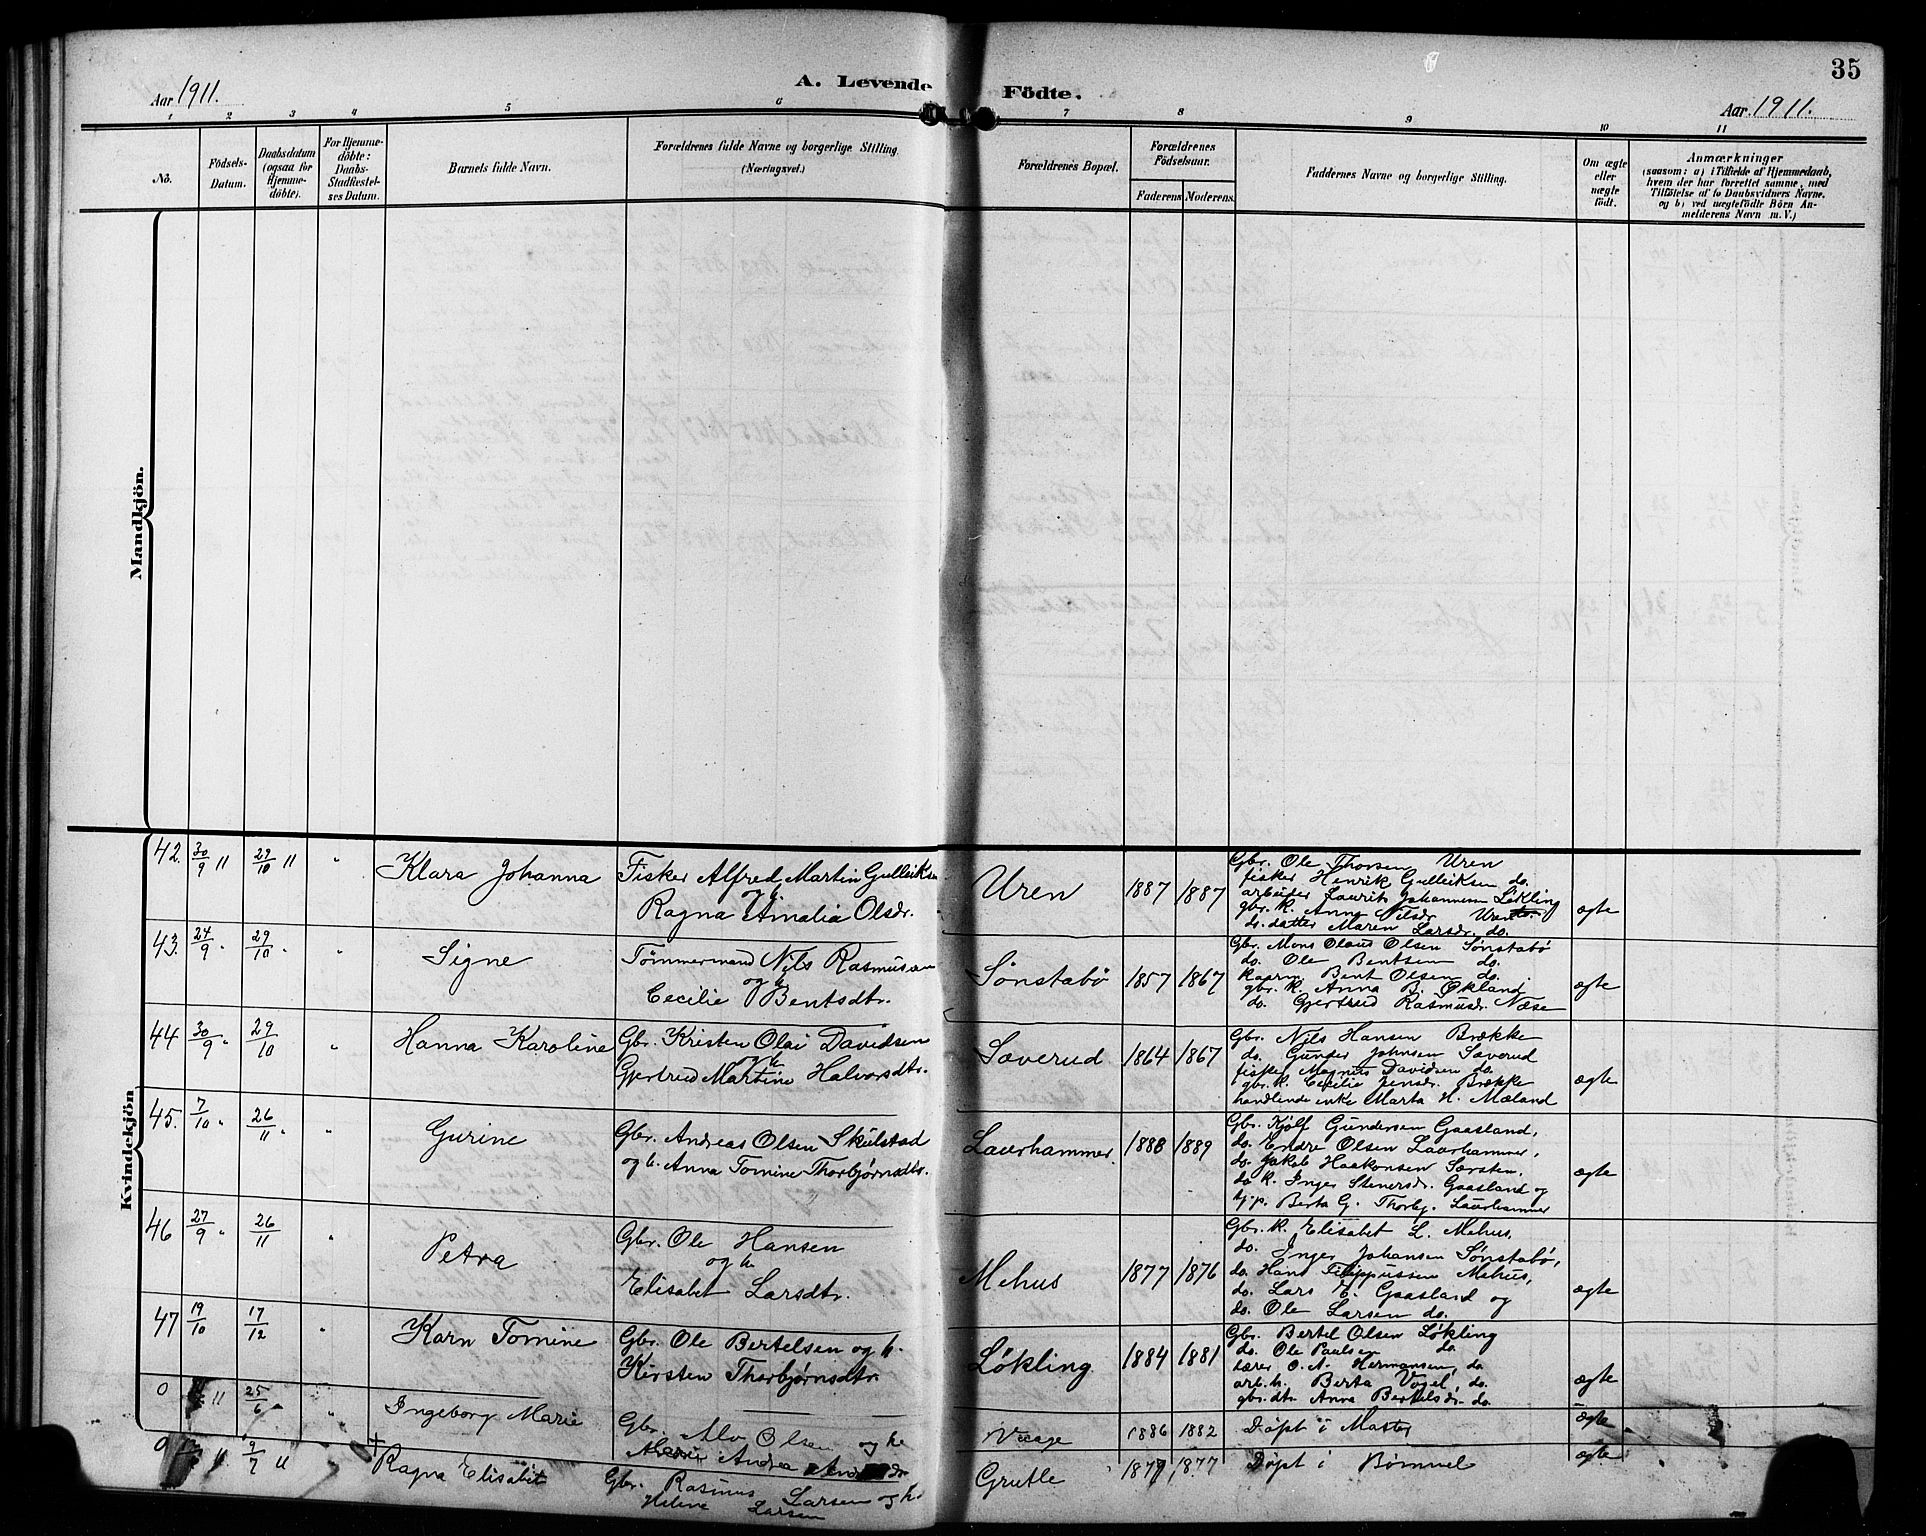 35
Aar 1911.
A. Levende Födte.
Aar 1911.
1 2 3 4 5 6 7 8 9 10 11
No.
Födsels-Datum.
Daabsdatum (ogsaa for Hjemme-döbte).
For Hjemme-döbte: Daabs-Stadfæstel-ses Datum.
Barnets fulde Navn.
Forældrenes fulde Navne og borgerlige Stilling
(Næringsvei.)
Forældrenes Bopæl.
Forældrenes Födselsaar.
Faderens Moderens.
Faddernes Navne og borgerlige Stilling.
Om ægte eller uægte födt.
Anmærkninger
(saasom: a) i Tilfælde af Hjemmedaab,
hvem der har forrettet samme, med
Tilföielse af to Daabsvidners Navne,
og b) ved uægtefödte Börn An-
melderens Navn m. V.)
Mandkjön.
Kvindekjön
42. 30/9 11 29/10 11 " Klara Johanna
Fisker Alfred Martin Gulleiksen
og h.
Ragna Amalia Olsdr.
Uren 1887 1887
Gbr. Ole Thorsen Uren
fisker Henrik Gulleiksen do.
arbeider Laurits Johannesen Løkling
gbr. k. Anna Nilsdr. Uren
do. datter Maren Larsdr. do.
ægte
43. 24/9 " 29/10 " " Signe
Tømmermand Nils Rasmussen
og h.
Cecilie Bentsdtr.
Sønstabø 1857 1867
Gbr. Mons Olaus Olsen Sønstabø
do. Ole Bentsen do.
kaarm. Bent Olsen do.
gbr. k. Anna B. Økland
do. Gjertrud Rasmusdr. Næse
ægte
44 30/9 " 29/10 " Hanna Karoline
Gbr. Kristen Olai Davidsen
og h.
Gjertrud Martine Halvorsdtr.
Saverud 1864 1867
Gbr. Nils Hansen Brække
do. Gunder Johnsen Saverud
fisker Magnus Davidsen do.
gbr. k. Cecilie Jensdr. Brække
handlende enke Marta H. Mæland
ægte
45. 7/10 " 26/11 " " Gurine
Gbr. Andreas Olsen Skulstad
og h. Anna Tomine Thorbjørnsdtr.
Laurhammer. 1888 1889
Gbr. Kjølf Gundersen Gaasland,
do. Endre Olsen Laurhammer,
do. Jakob Haakonsen Sørsten,
do. k. Inger Stenersdr. Gaasland og
tj.p. Berta G. Thorbj. Laurhammer
ægte
46 27/9 " 26/11 " Petra
Gbr. Ole Hansen
og h.
Elisabet Larsdtr.
Mehus 1877 1876
Gbr. k. Elisabet L. Mehus,
do. Inger Johansen Sønstabø,
do. Hans Filippussen Mehus,
do. Lars E. Gaasland og
do. Ole Larsen do.
ægte
47 19/10 17/12 " Karn Tomine
Gbr. Ole Bertelsen og h.
Kirsten Thorbjørnsdtr.
Løkling. 1884 1881
Gbr. Bertel Olsen Løkling
do. Ole Paulsen do.
lærer O. A. Hermansen, do.
arb. h. Berta Vogel, do.
gbr. dtr. Anna Bertelsdr. do.
ægte
0 11 25/6 " Ingeborg Marie
Gbr. Alv Olsen og h.
Andrea
Vaage 1886 1882 Døpt i Moster ægte
0 11 9/7 11 + Ragna Elisabet
Gbr. Rasmus Larsen og h.
Helene Larsen
Grutle 1877 1877 Døpt i Bømmel ægte